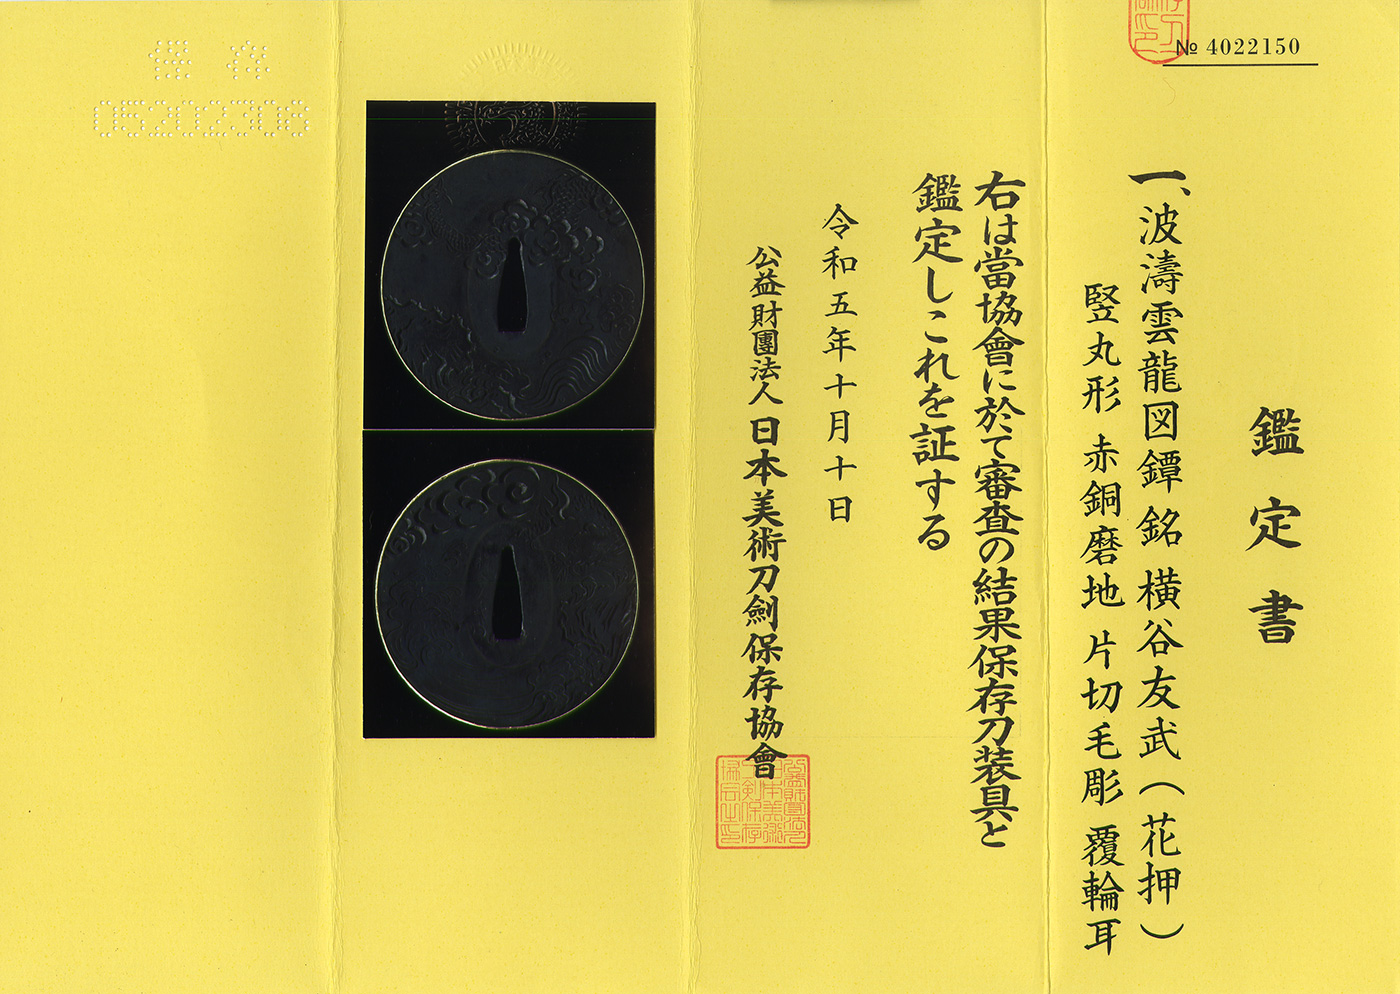 № 4022150
鑑定書
一、波濤雲龍図鐔 銘 横谷友武(花押)
竪丸形 赤銅磨地 片切毛彫 覆輪耳
右は當協會に於て審査の結果保存刀装具と
鑑定しこれを証する
令和五年十月十日
公益財團法人 日本美術刀劍保存協會
保存
05202306